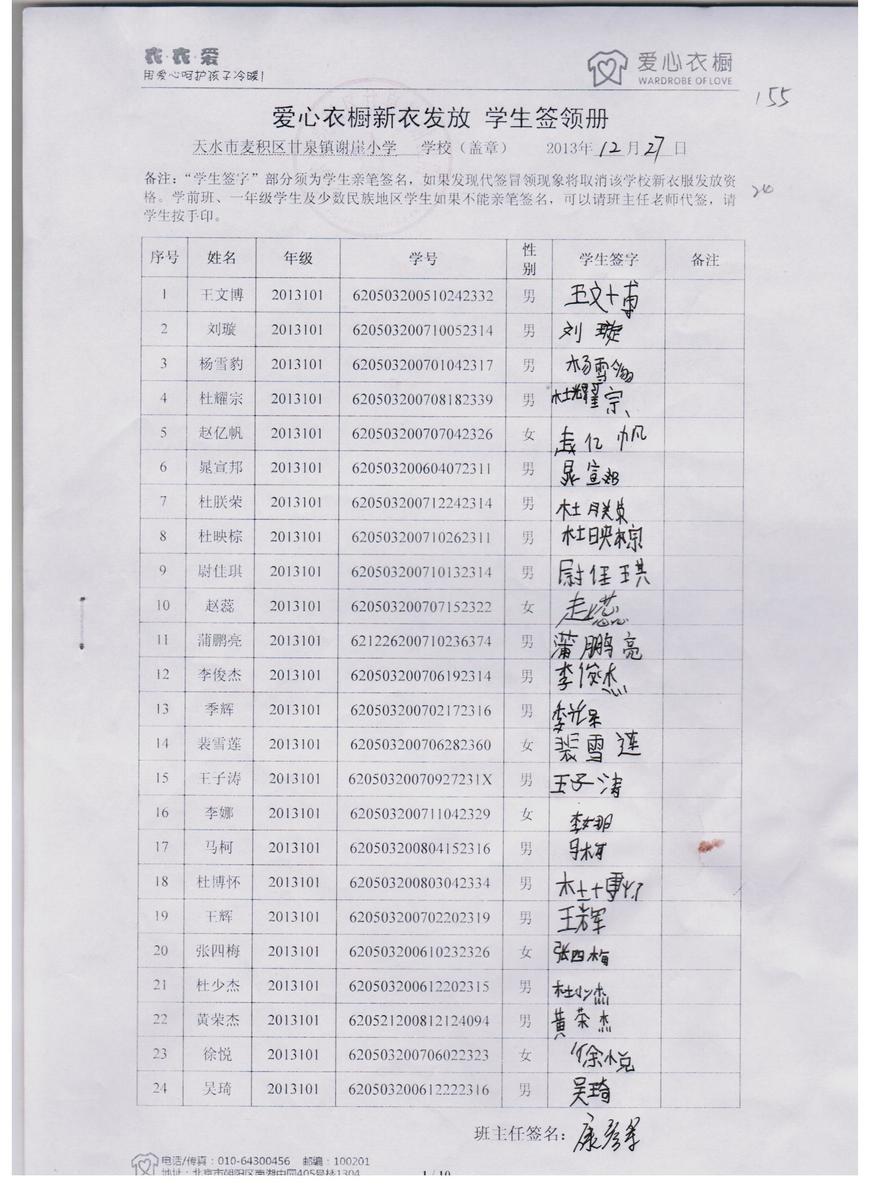 衣·衣·爱
用爱心呵护孩子冷暖!
爱心衣橱
WARDROBE OF LOVE
155
爱心衣橱新衣发放 学生签领册
天水市麦积区甘泉镇谢崖小学 学校（盖章） 2013年12月27日
备注：“学生签字”部分须为学生亲笔签名，如果发现代签冒领现象将取消该学校新衣服发放资
格。学前班、一年级学生及少数民族地区学生如果不能亲笔签名，可以请班主任老师代签，请
学生按手印。
序号 姓名 年级 学号 性别 学生签字 备注
1 王文博 2013101 620503200510242332 男 王文博
2 刘璇 2013101 620503200710052314 男 刘璇
3 杨雪豹 2013101 620503200701042317 男 杨雪豹
4 杜耀宗 2013101 620503200708182339 男 杜耀宗
5 赵亿帆 2013101 620503200707042326 女 赵亿帆
6 晁宣邦 2013101 620503200604072311 男 晁宣邦
7 杜朕荣 2013101 620503200712242314 男 杜朕荣
8 杜映棕 2013101 620503200710262311 男 杜映棕
9 尉佳琪 2013101 620503200710132314 男 尉佳琪
10 赵蕊 2013101 620503200707152322 女 赵蕊
11 蒲鹏亮 2013101 621226200710236374 男 蒲鹏亮
12 李俊杰 2013101 620503200706192314 男 李俊杰
13 季辉 2013101 620503200702172316 男
14 裴雪莲 2013101 620503200706282360 女 裴雪莲
15 王子涛 2013101 62050320070927231X 男 王子涛
16 李娜 2013101 620503200711042329 女 李娜
17 马柯 2013101 620503200804152316 男 马柯
18 杜博怀 2013101 620503200803042334 男 杜博怀
19 王辉 2013101 620503200702202319 男 王辉
20 张四梅 2013101 620503200610232326 女 张四梅
21 杜少杰 2013101 620503200612202315 男 杜少杰
22 黄荣杰 2013101 620521200812124094 男 黄荣杰
23 徐悦 2013101 620503200706022323 女 徐悦
24 吴琦 2013101 620503200612222316 男 吴琦
班主任签名：
电话/传真：010-64300456 邮编：100201
地址：北京市朝阳区南湖中园405号楼1304
1 / 10